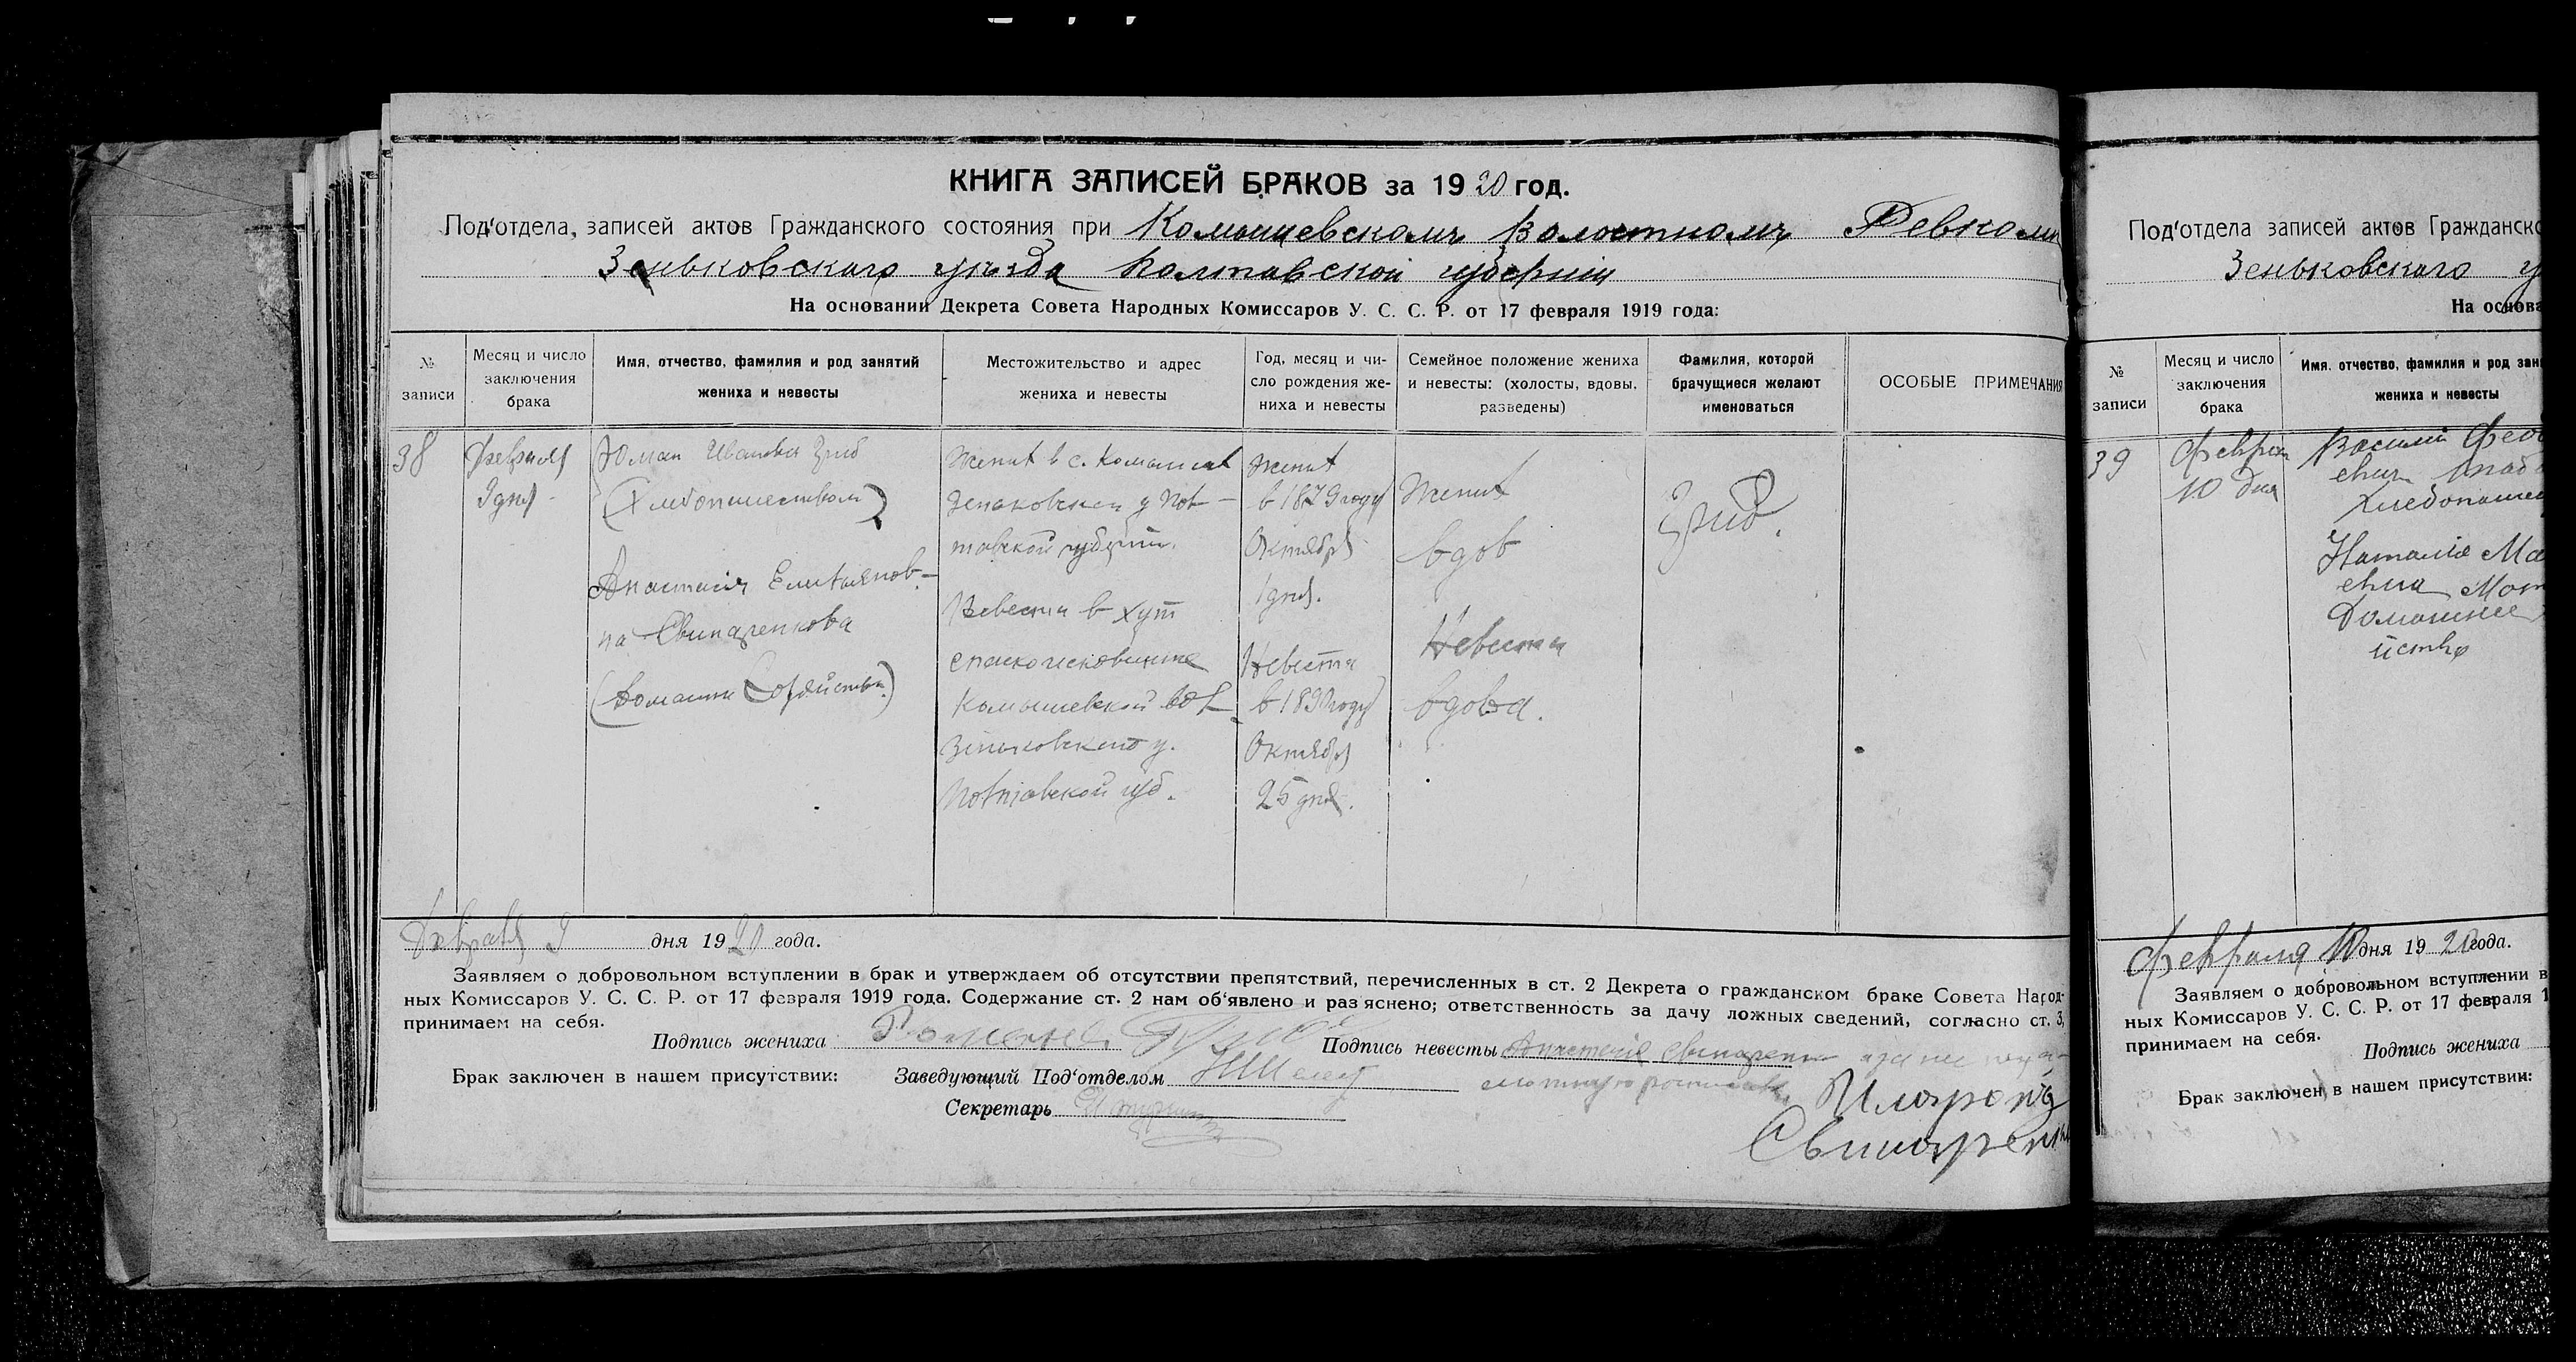 КНИГА ЗАПИСЕЙ БРАКОВ за 1920 год.
Под'отдела, записей актов Гражданского состояния при Комышевскомъ Волостномъ Ревкоми
Зеньковскаго уѣзда Полтавской губерніи
На основании Декрета Совета Народных Комиссаров У. С. С. Р. от 17 февраля 1919 года:
№ записи
Месяц и число заключения брака
Имя, отчество, фамилия и род занятий жениха и невесты
Местожительство и адрес жениха и невесты
Год, месяц и число рождения жениха и невесты
Семейное положение жениха и невесты: (холосты, вдовы, разведены)
Фамилия, которой брачущиеся желают именоваться
ОСОБЫЕ ПРИМЕЧАНИЯ
38
Февраля
9 дня
Роман Иванович Гриб
(Хлебопашеством)
Анастасія Емельянов-
на Свинаренкова
(Домашн Хозяйством)
Жених в с. Комышах
Зеньковского у Пол-
тавской губернии.
Невеста в хут
Комышевской вол.
Зеньковского у.
Полтавской губ.
Жених
в 1879 году
Октября
1 дня.
Невеста
в 1890 году
Октября
25 дня.
Жених
вдов
Невеста
вдова.
Гриб.
Февраля 9 дня 1920 года.
Заявляем о добровольном вступлении в брак и утверждаем об отсутствии препятствий, перечисленных в ст. 2 Декрета о гражданском браке Совета Народ-
ных Комиссаров У. С. С. Р. от 17 февраля 1919 года. Содержание ст. 2 нам об'явлено и раз'яснено; ответственность за дачу ложных сведений, согласно ст. 3,
принимаем на себя.
Подпись жениха Роман Гриб
Подпись невесты Анастасія Свинаренк
Брак заключен в нашем присутствии: Заведующий Под'отделом
Секретарь
Иларонъ
Свинаренк
Под'отдела записей актов Гражданско
Зеньковскаго у
На основа
№ записи
Месяц и число заключения брака
Имя, отчество, фамилия и род зан
жениха и невесты
39
Февраля
10 дня
Василій Федо
евич
Хлебопашец
Наталія Ма
евна
Домашнее
йство
Февраля 10 дня 1920 года.
Заявляем о добровольном вступлении в
ных Комиссаров У. С. С. Р. от 17 февраля 1
принимаем на себя.
Подпись жениха
Брак заключен в нашем присутствии: